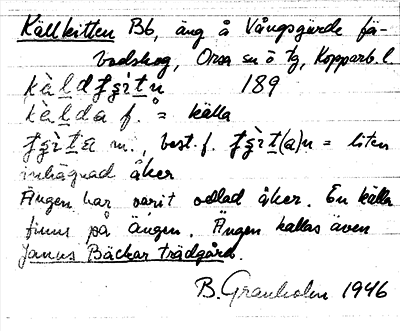 Källkitten Bb, äng å Vångsgärde fä-
bodskog, Orsa sn ö tg, Kopparb. l.
189
f. = källa
m., best. f. = liten
inhägnad åker
Ängen har varit odlad åker. En källa
finns på ängen. Ängen kallas även
Jannes Bäckar trädgård.
B. Granholm 1946